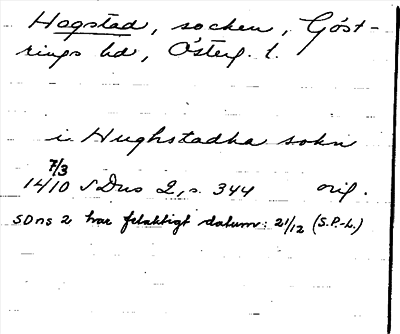 Hogstad, socken, Göst-
rings hd, Österg. l.
i Hughstadha sokn
7/3
1410 SDns 2, s. 344 orig.
SDns 2 har felaktigt datum: 21/12 (S.P.-L.)